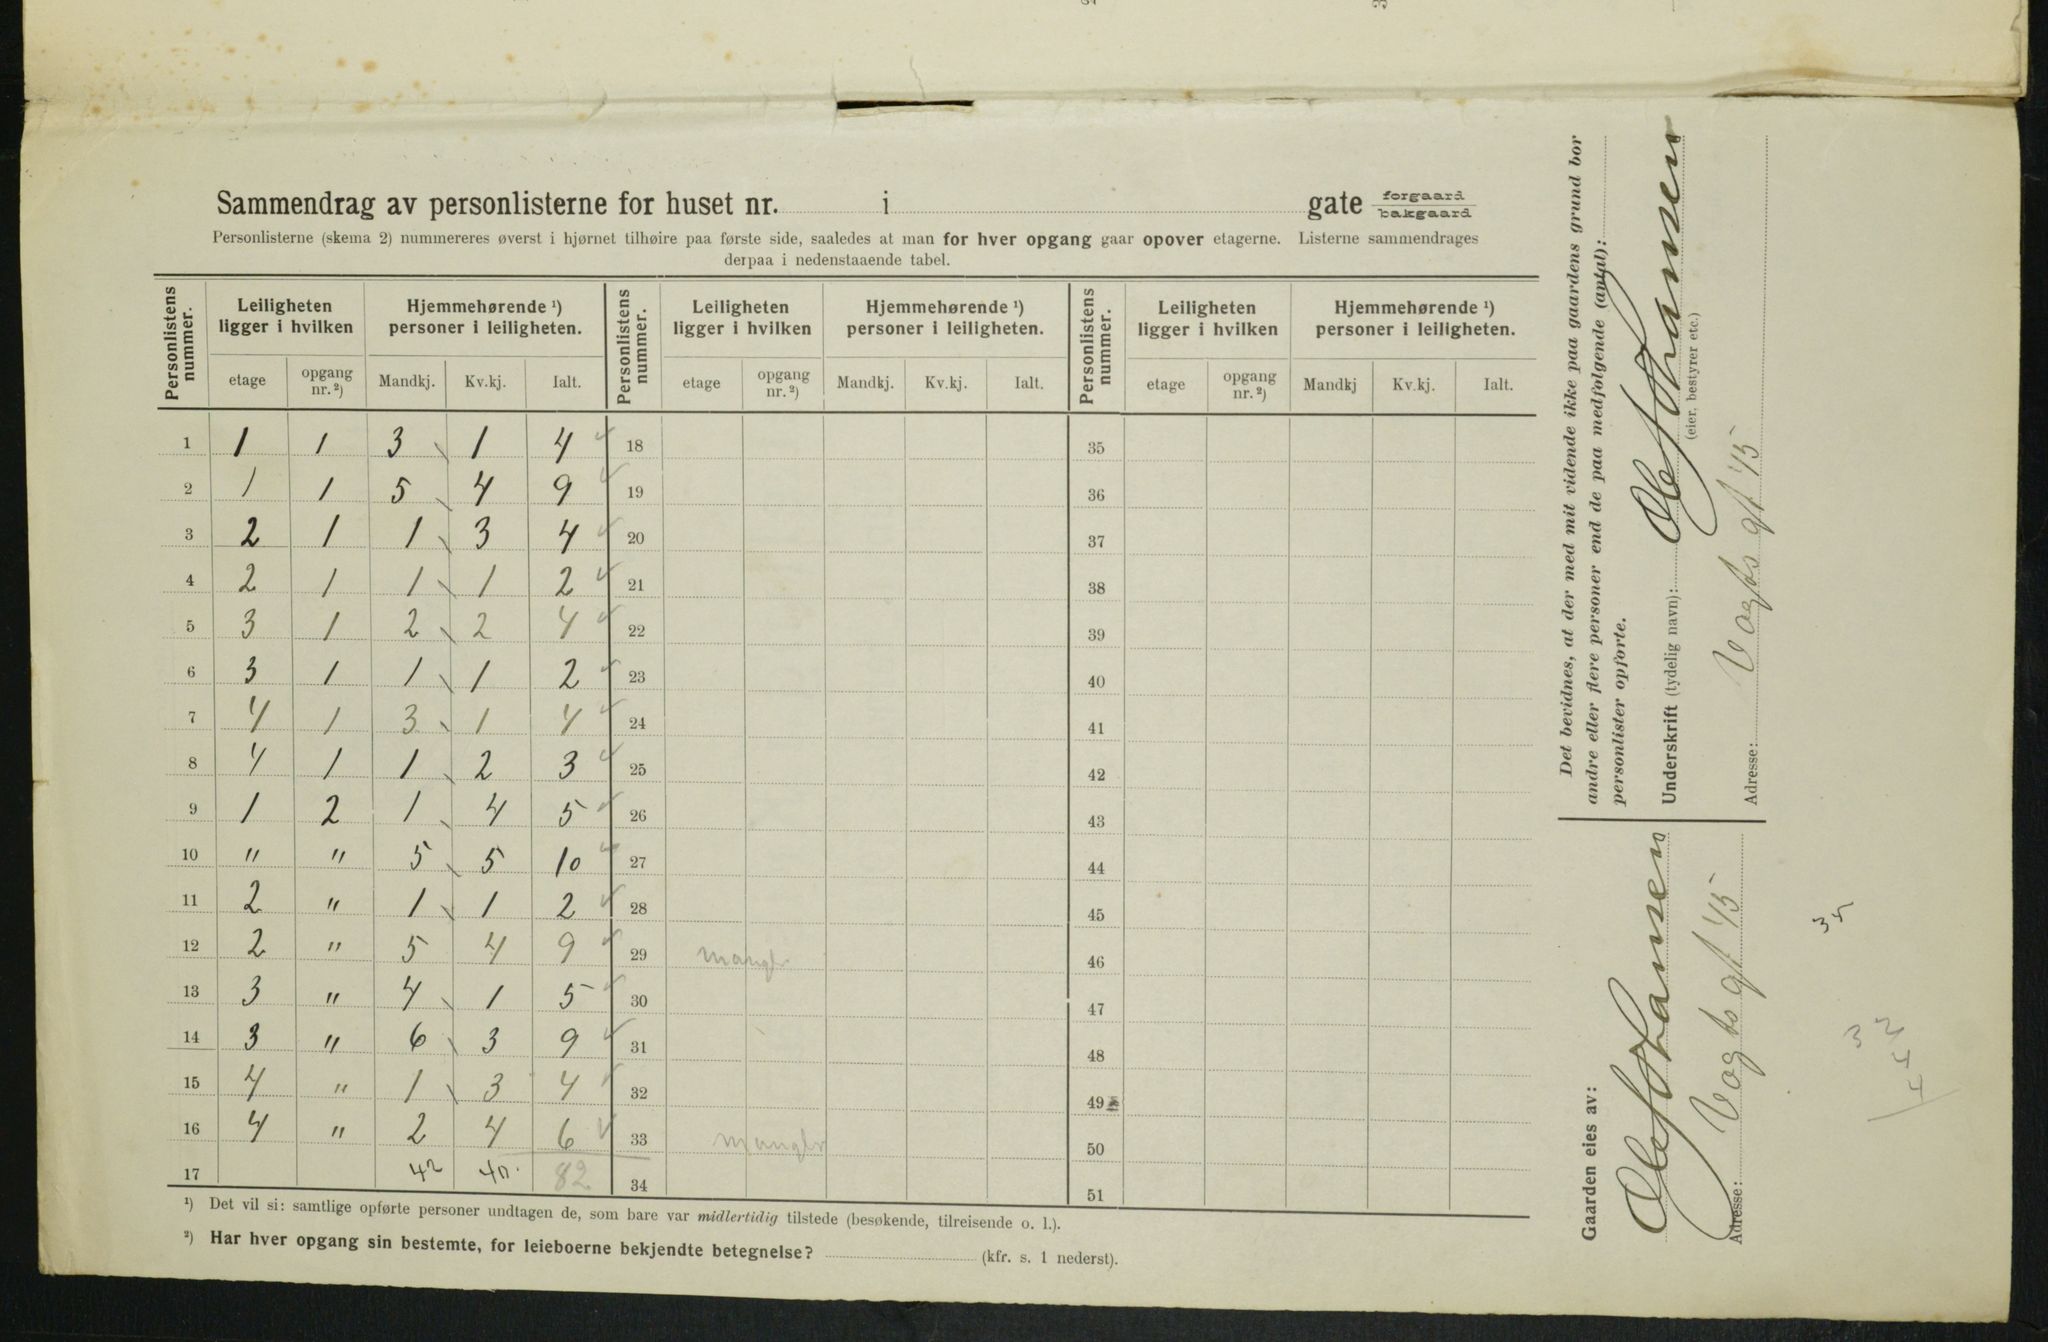 Sammendrag av personlisterne for huset nr. i gate forgaard bakgaard
Personlisterne (skema 2) nummereres øverst i hjørnet tilhøire paa første side, saaledes at man for hver opgang gaar opover etagerne. Listerne sammendrages
derpaa i nedenstaaende tabel.
Personlistens nummer. Leiligheten ligger i hvilken Hjemmehørende ¹) personer i leiligheten. Personlistens nummer. Leiligheten ligger i hvilken Hjemmehørende ¹) personer i leiligheten. Personlistens nummer. Leiligheten ligger i hvilken Hjemmehørende ¹) personer i leiligheten.
etage opgang nr. ²) Mandkj. Kv.kj. Ialt. etage opgang nr. ²) Mandkj. Kv.kj. Ialt. etage opgang nr. ²) Mandkj Kv.kj. Ialt.
1 1 1 3 1 4 18 35
2 1 1 5 4 9 19 36
3 2 1 1 3 4 20 37
4 2 1 1 1 2 21 38
5 3 1 2 2 4 22 39
6 3 1 1 1 2 23 40
7 4 1 3 1 4 24 41
8 4 1 1 2 3 25 42
9 1 2 1 4 5 26 43
10 " " 5 5 10 27 44
11 2 " 1 1 2 28 45
12 2 " 5 4 9 29 mangler 46
13 3 " 4 1 5 30 47
14 3 " 6 3 9 31 48
15 4 " 1 3 4 32 49
16 4 " 2 4 6 33 mangler 50
17 42 40 82 34 51
¹) Det vil si: samtlige opførte personer undtagen de, som bare var midlertidig tilstede (besøkende, tilreisende o. l.).
²) Har hver opgang sin bestemte, for leieboerne bekjendte betegnelse? (kfr. s. 1 nederst).
Det bevidnes, at der med mit vidende ikke paa gaardens grund bor
andre eller flere personer end de paa medfølgende (antal):
personlister opførte.
Underskrift (tydelig navn): Ole Johansen
(eier, bestyrer etc.)
Adresse: Vogts gt 45
Gaarden eies av: Ole Johansen
Adresse: Vogts gt 45
35
32
4
4